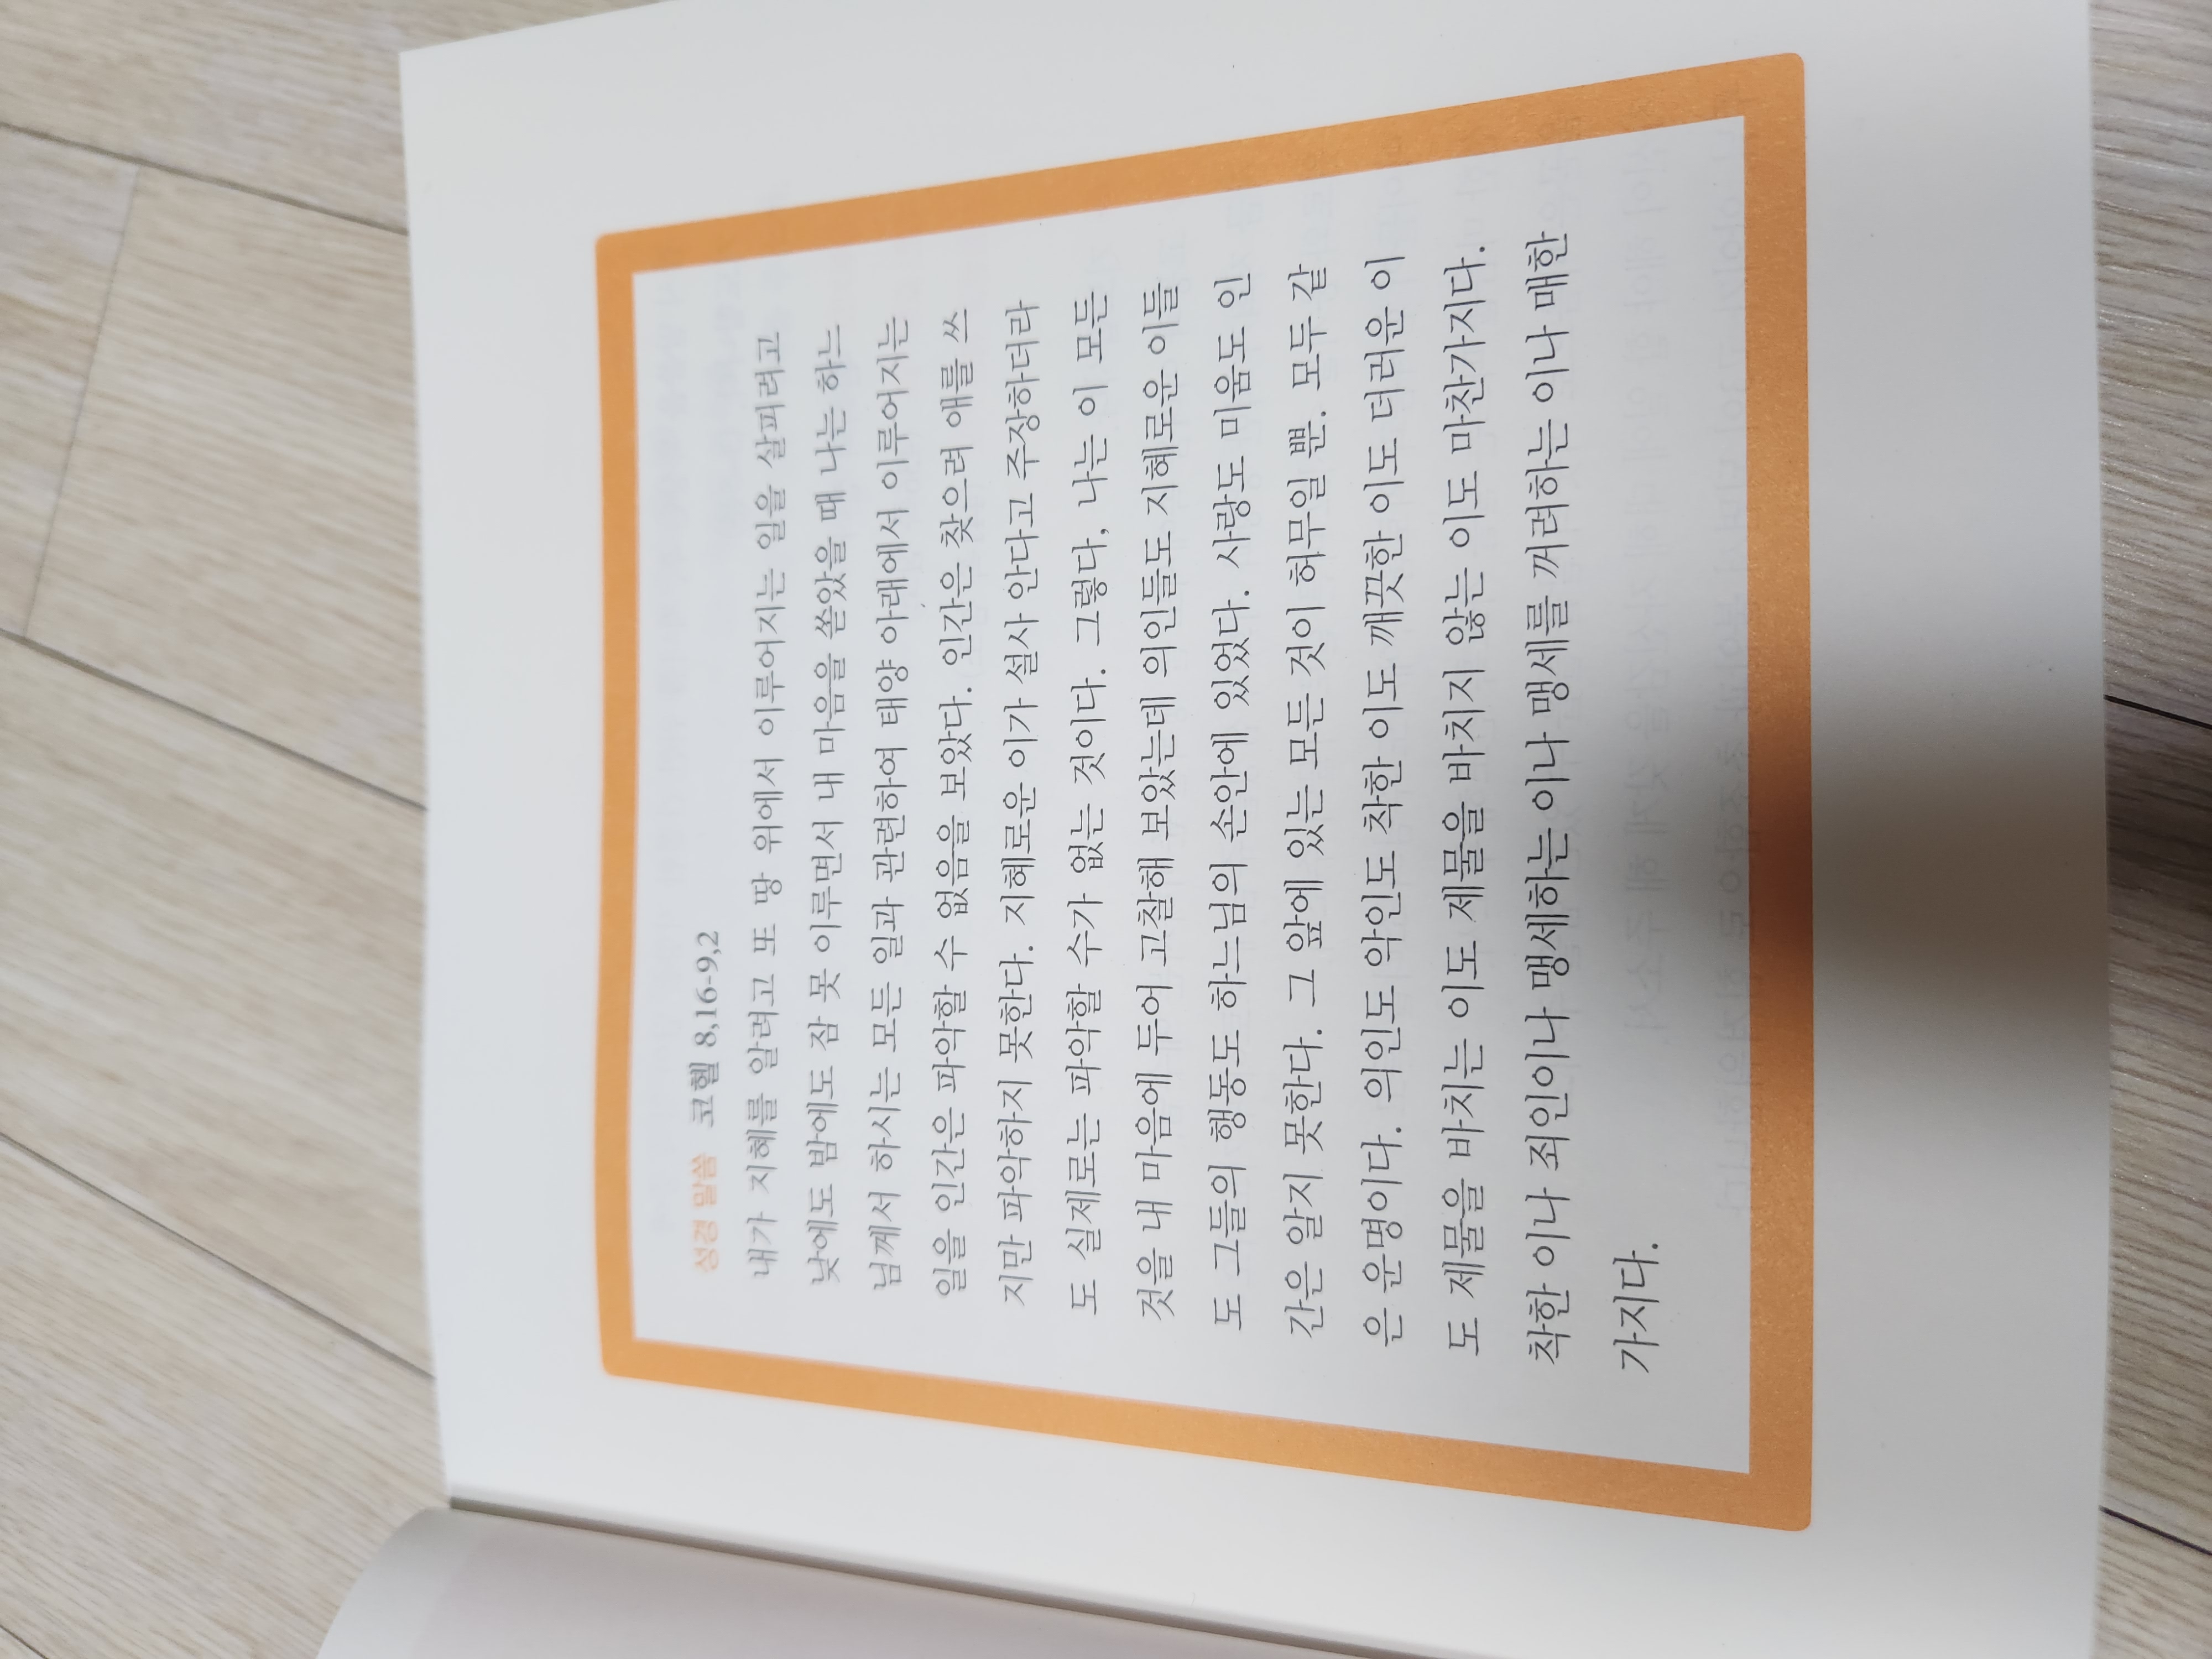 성경 말씀 코헬 8,16-9,2
내가 지혜를 알려고 또 땅 위에서 이루어지는 일을 살피려고
낮에도 밤에도 잠 못 이루면서 내 마음을 쏟았을 때 나는 하느
님께서 하시는 모든 일과 관련하여 태양 아래에서 이루어지는
일을 인간은 파악할 수 없음을 보았다. 인간은 찾으려 애를 쓰
지만 파악하지 못한다. 지혜로운 이가 설사 안다고 주장하더라
도 실제로는 파악할 수가 없는 것이다. 그렇다, 나는 이 모든
것을 내 마음에 두어 고찰해 보았는데 의인들도 지혜로운 이들
도 그들의 행동도 하느님의 손안에 있었다. 사랑도 미움도 인
간은 알지 못한다. 그 앞에 있는 모든 것이 허무일 뿐. 모두 같
은 운명이다. 의인도 악인도 착한 이도 깨끗한 이도 더러운 이
도 제물을 바치는 이도 제물을 바치지 않는 이도 마찬가지다.
착한 이나 죄인이나 맹세하는 이나 맹세를 꺼려하는 이나 매한
가지다.